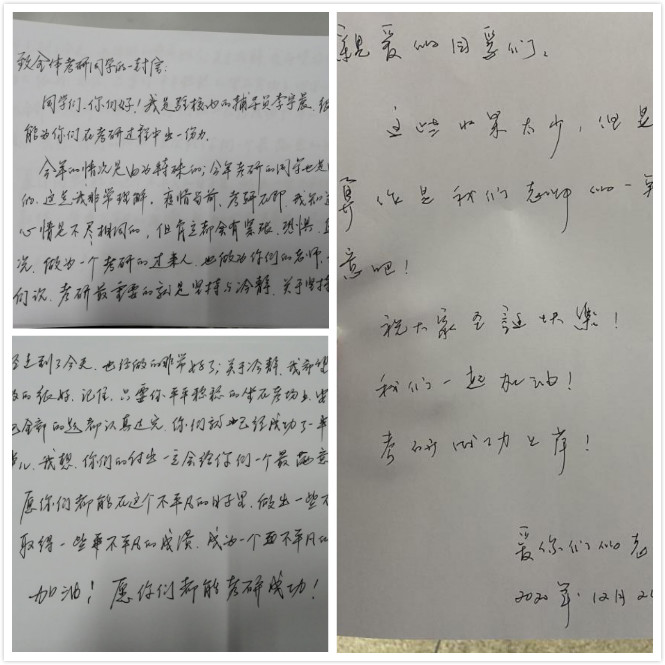 致全体考研同学的一封信:
同学们,你们好!我是驻校内的辅导员李宇晨,很
能为你们在考研过程中出一份力.
今年的情况是尤为特殊的;今年考研的同学也是
的.这点我非常理解,疫情当前,考研在即,我知道
心情是不尽相同的,但肯定都会有紧张、恐惧、
况.做为一个考研的过来人,也做为你们的老师,
们说.考研最重要的就是坚持与冷静.关于坚持
走到了今天,也经做的非常好了;关于冷静,我希望
的很好.记住,只要你平平稳稳的坐在考场上,
全部的题都认真过完,你们就已经成功了一半
我想,你们的付出一定会给你们一个最满意
愿你们都能在这个不平凡的日子里,做出一些不
取得一些更不平凡的成绩,成为一个更不平凡的
加油!愿你们都能考研成功!
親爱的同学们,
这些水果太少,但是
算作是我们老师的一点
意吧!
祝大家圣誕快樂!
我们一起加油!
考研成功上岸!
爱你们的老
2020年.12月2